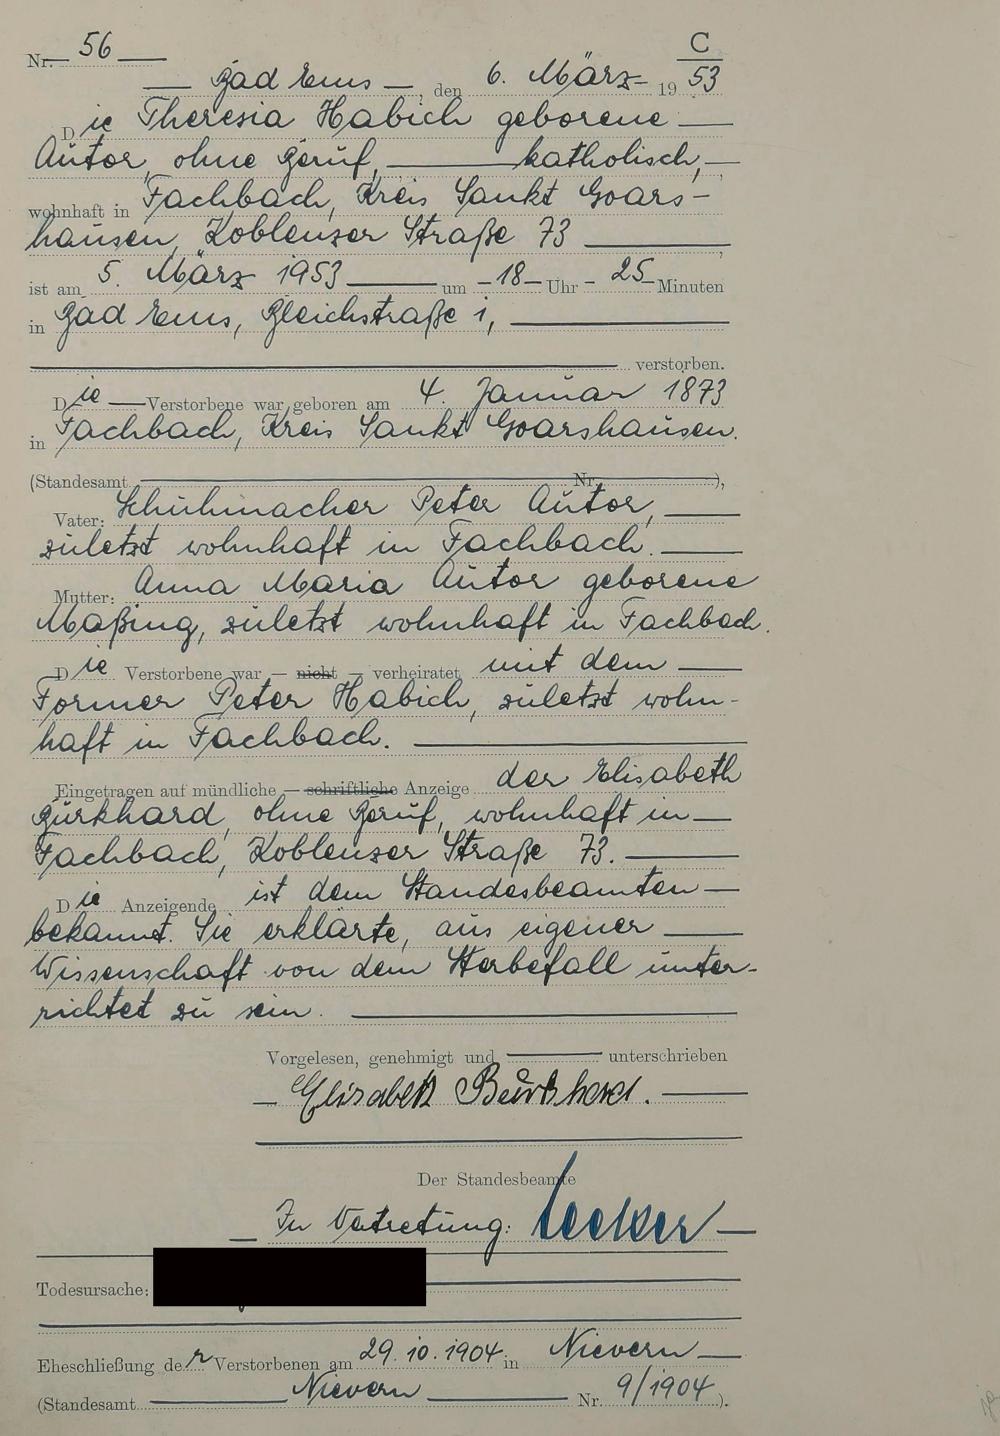 Nr. 56
C
Bad Ems, den 6. März 1953
Die Theresia Habich geborene
Autor, ohne Beruf, katholisch,
wohnhaft in Fachbach, Kreis Sankt Goars-
hausen, Koblenzer Straße 73,
ist am 5. März 1953 um 18 Uhr 25 Minuten
in Bad Ems, Bleichstraße 1,
verstorben.
Die Verstorbene war geboren am 4. Januar 1873
in Fachbach, Kreis Sankt Goarshausen.
(Standesamt Nr. ),
Vater: Schuhmacher Peter Autor,
zuletzt wohnhaft in Fachbach.
Mutter: Anna Maria Autor geborene
Maßing, zuletzt wohnhaft in Fachbach.
Die Verstorbene war – nicht – verheiratet mit dem
Former Peter Habich, zuletzt wohn-
haft in Fachbach.
Eingetragen auf mündliche – schriftliche Anzeige der Elisabeth
Burkhard, ohne Beruf, wohnhaft in
Fachbach, Koblenzer Straße 73.
Die Anzeigende ist dem Standesbeamten
bekannt. Sie erklärte, aus eigener
Wissenschaft von dem Sterbefall unter-
richtet zu sein.
Vorgelesen, genehmigt und unterschrieben
Elisabeth Burkhard.
Der Standesbeamte
In Vertretung:
Todesursache:
Eheschließung der Verstorbenen am 29.10.1904 in Nievern
(Standesamt Nievern Nr. 9/1904).